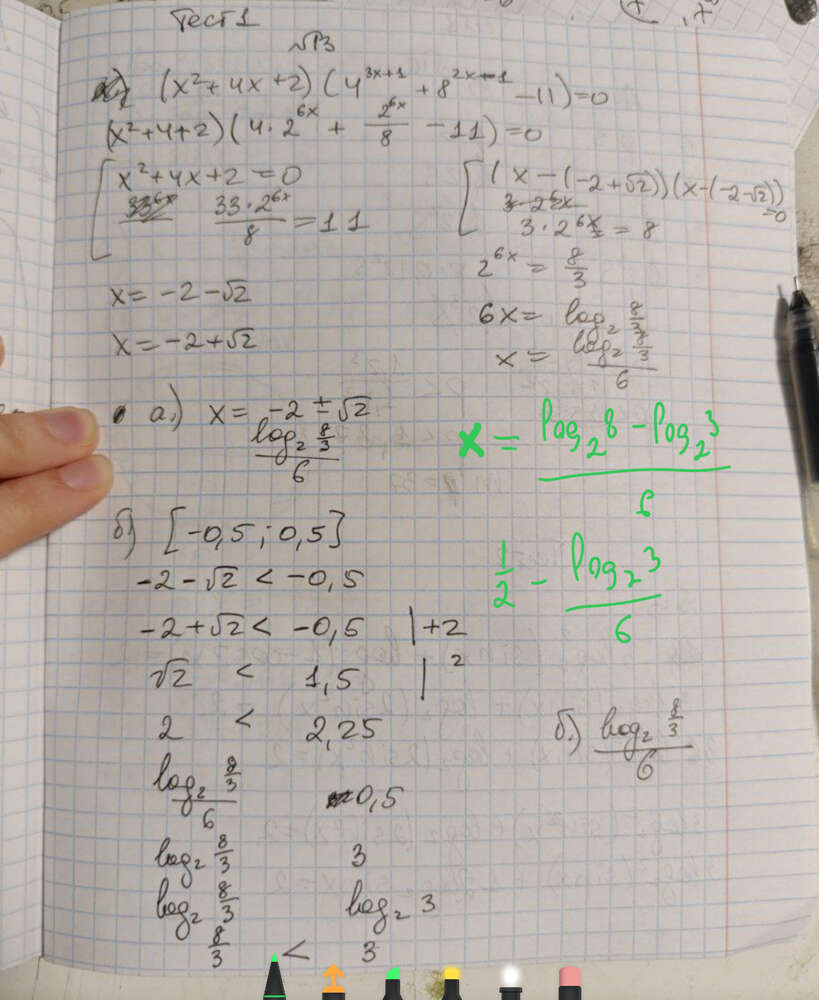 Тест 1
№13
а) (x²+4x+2)(4^{3x+1} + 8^{2x-1} - 11)=0
(x²+4+2)(4·2^{6x} + \frac{2^{6x}}{8} - 11)=0
x²+4x+2=0
\frac{33·2^{6x}}{8} = 11
x = -2-√2
x = -2+√2
(x-(-2+√2))(x-(-2-√2))=0
3·2^{6x} = 8
2^{6x} = \frac{8}{3}
6x = log₂ \frac{8}{3}
x = \frac{log₂ \frac{8}{3}}{6}
а.) x = -2 ± √2
\frac{log₂ \frac{8}{3}}{6}
x = \frac{log₂8 - log₂3}{6}
\frac{1}{2} - \frac{log₂3}{6}
б) [-0,5; 0,5]
-2-√2 < -0,5
-2+√2 < -0,5 |+2
√2 < 1,5 |²
2 < 2,25
\frac{log₂ \frac{8}{3}}{6} 0,5
log₂ \frac{8}{3} 3
log₂ \frac{8}{3} log₂ 3
\frac{8}{3} < 3
б.) \frac{log₂ \frac{8}{3}}{6}